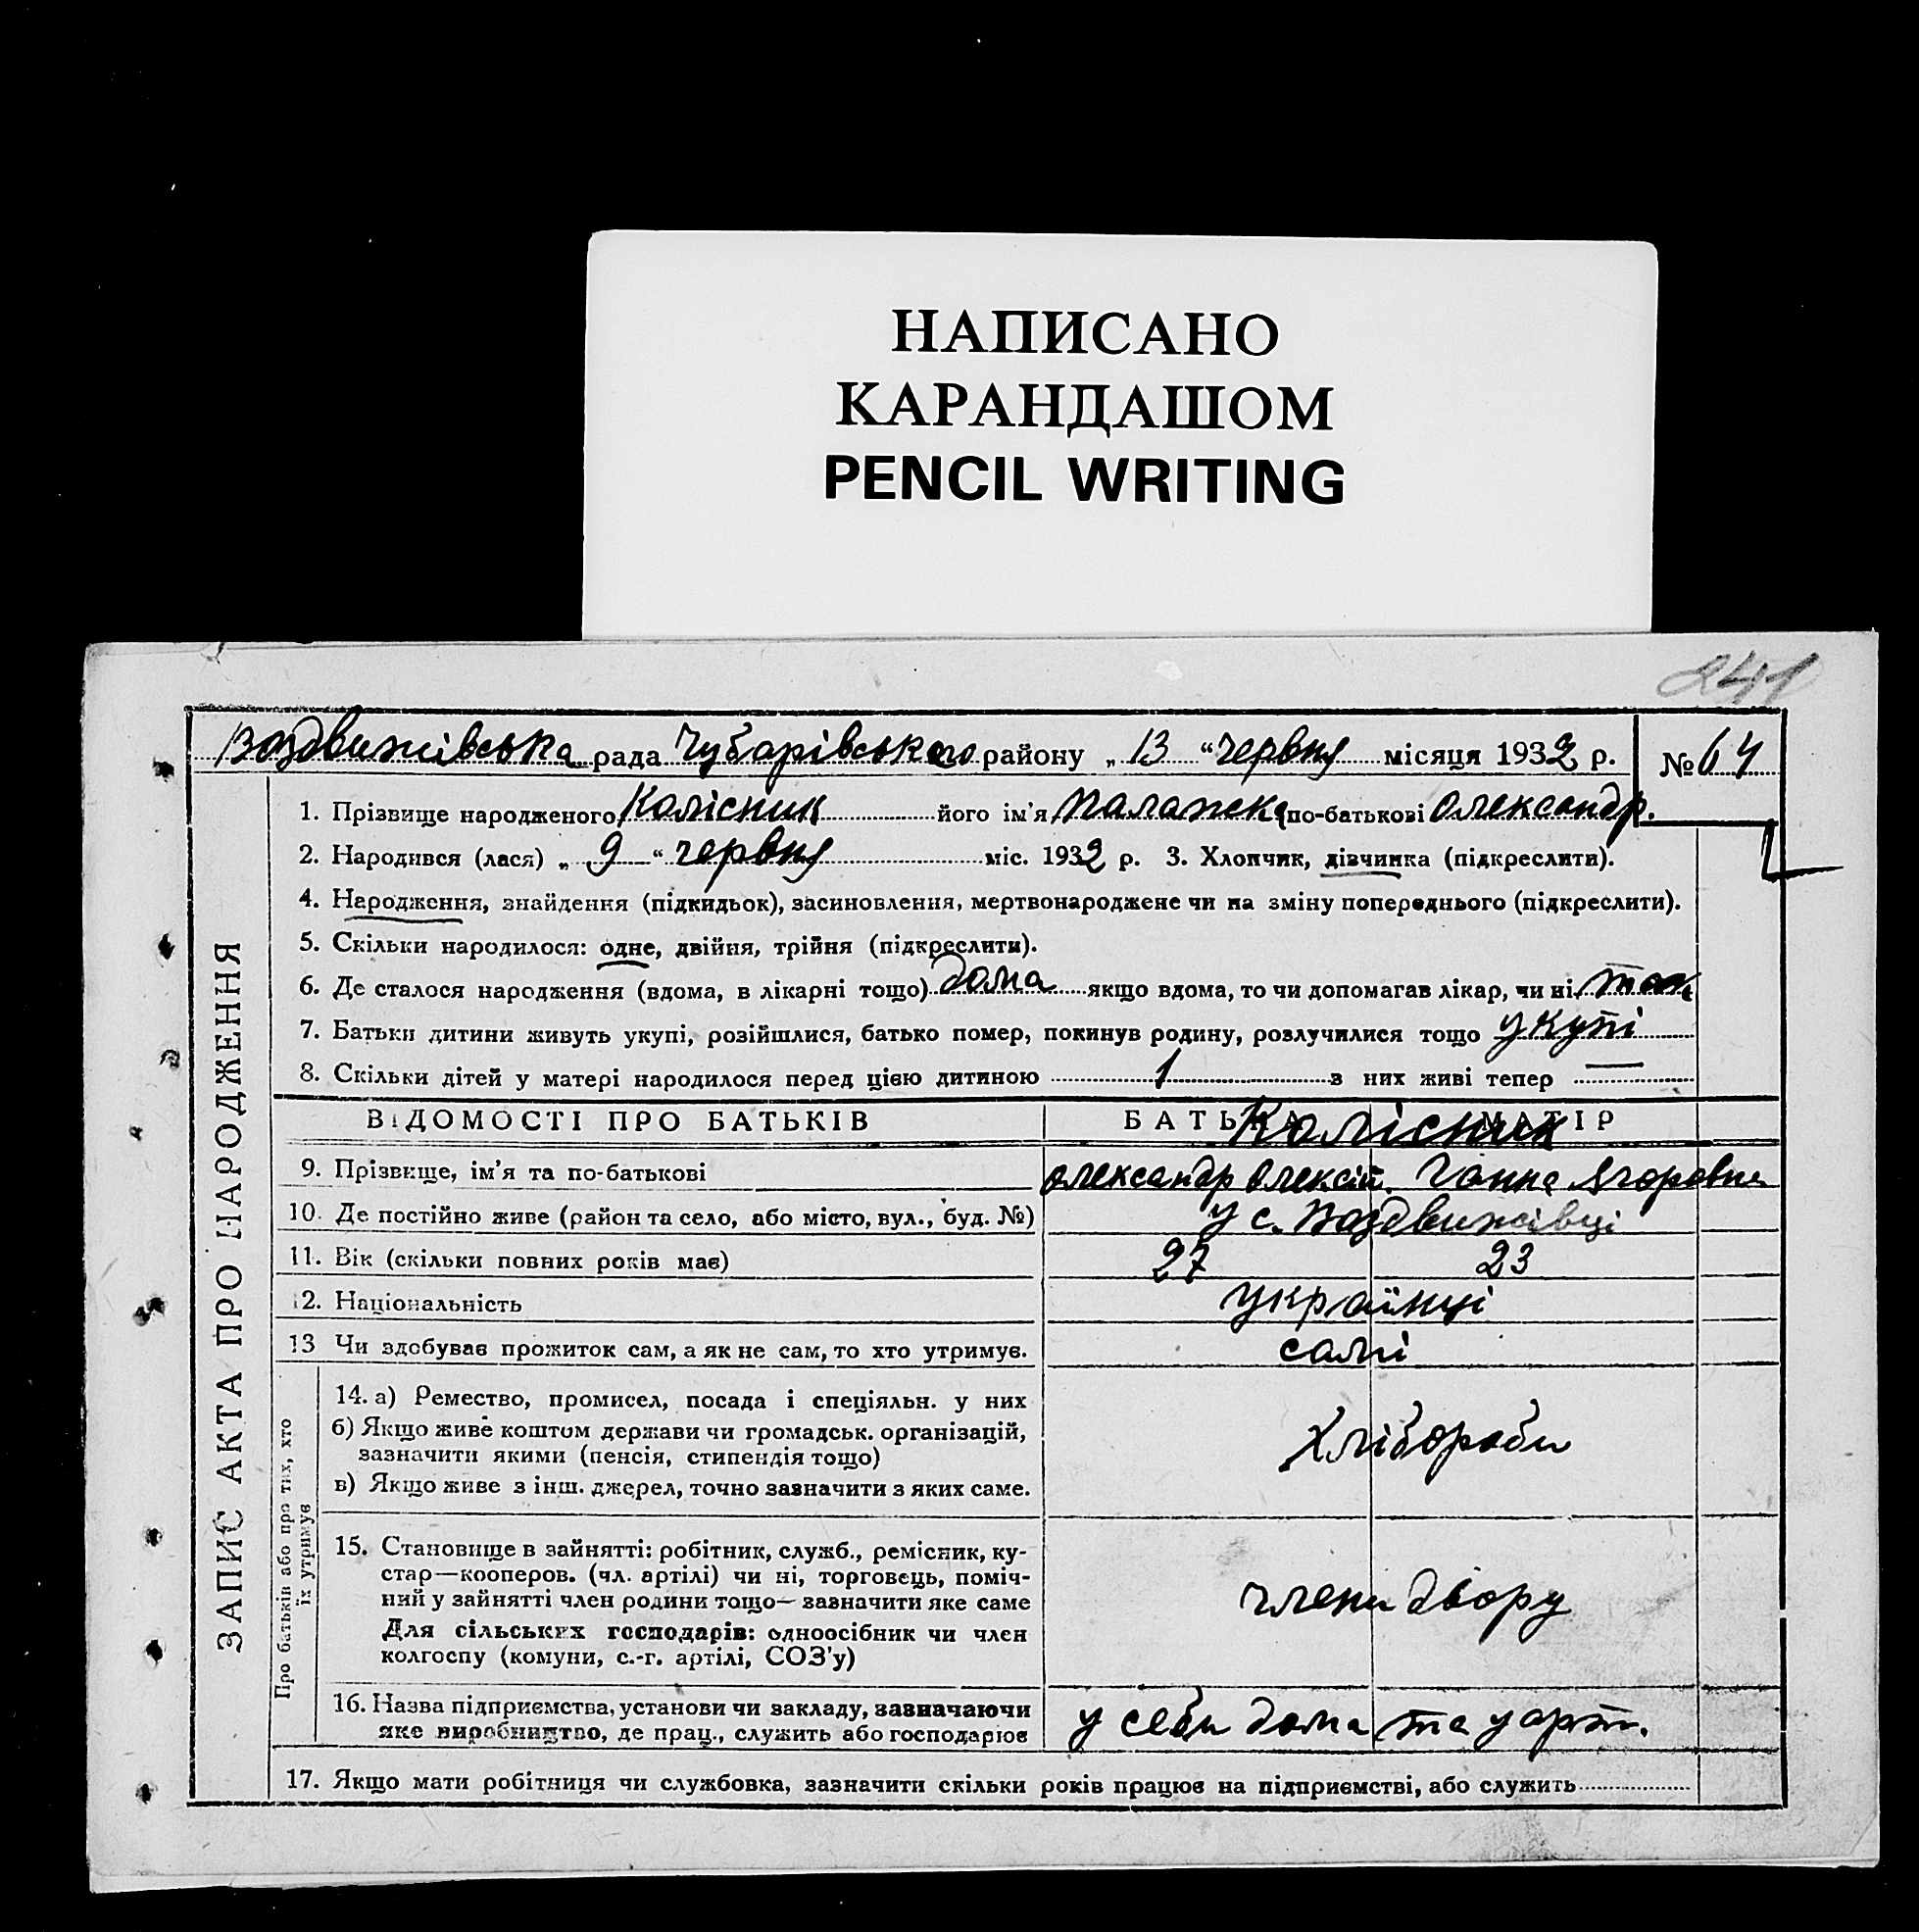 НАПИСАНО
КАРАНДАШОМ
PENCIL WRITING
241
Воздвижівська рада Чубарівського району „ 13 “ червня місяця 1932 р. № 64
1. Прізвище народженого Колісник його ім'я Палажка по-батькові Олександр.
2. Народився (лася) „ 9 “ червня міс. 1932 р. 3. Хлопчик, дівчинка (підкреслити).
4. Народження, знайдення (підкидьок), засиновлення, мертвонароджене чи на зміну попереднього (підкреслити).
5. Скільки народилося: одне, двійня, трійня (підкреслити).
6. Де сталося народження (вдома, в лікарні тощо) дома якщо вдома, то чи допомагав лікар, чи ні
7. Батьки дитини живуть укупі, розійшлися, батько помер, покинув родину, розлучилися тощо укупі
8. Скільки дітей у матері народилося перед цією дитиною 1 в них живі тепер —
ЗАПИС АКТА ПРО НАРОДЖЕННЯ
ВІДОМОСТІ ПРО БАТЬКІВ БАТЬКО МАТІР
Колісник
9. Прізвище, ім'я та по-батькові Олександр Олексій. Ганна Ягоровна
10. Де постійно живе (район та село, або місто, вул., буд. №) у с. Воздвижівці
11. Вік (скільки повних років має) 27 23
12. Національність українці
13 Чи здобував прожиток сам, а як не сам, то хто утримує. самі
Про батьків або про тих, хто
їх утримує
14. а) Ремество, промисел, посада і спеціяльн. у них
б) Якщо живе коштом держави чи громадськ. організацій,
зазначити якими (пенсія, стипендія тощо)
в) Якщо живе з інш. джерел, точно зазначити з яких саме.
Хлібороби
15. Становище в зайнятті: робітник, служб., ремісник, ку-
стар—кооперов. (чл. артілі) чи ні, торговець, поміч-
ний у зайнятті член родини тощо— зазначити яке саме
Для сільських господарів: одноосібник чи член
колгоспу (комуни, с.-г. артілі, СОЗ'у)
члени двору
16. Назва підприємства, установи чи закладу, зазначаючи
яке виробництво, де прац., служить або господарює
у себи дома та у арт.
17. Якщо мати робітниця чи службовка, зазначити скільки років працює на підприємстві, або служить